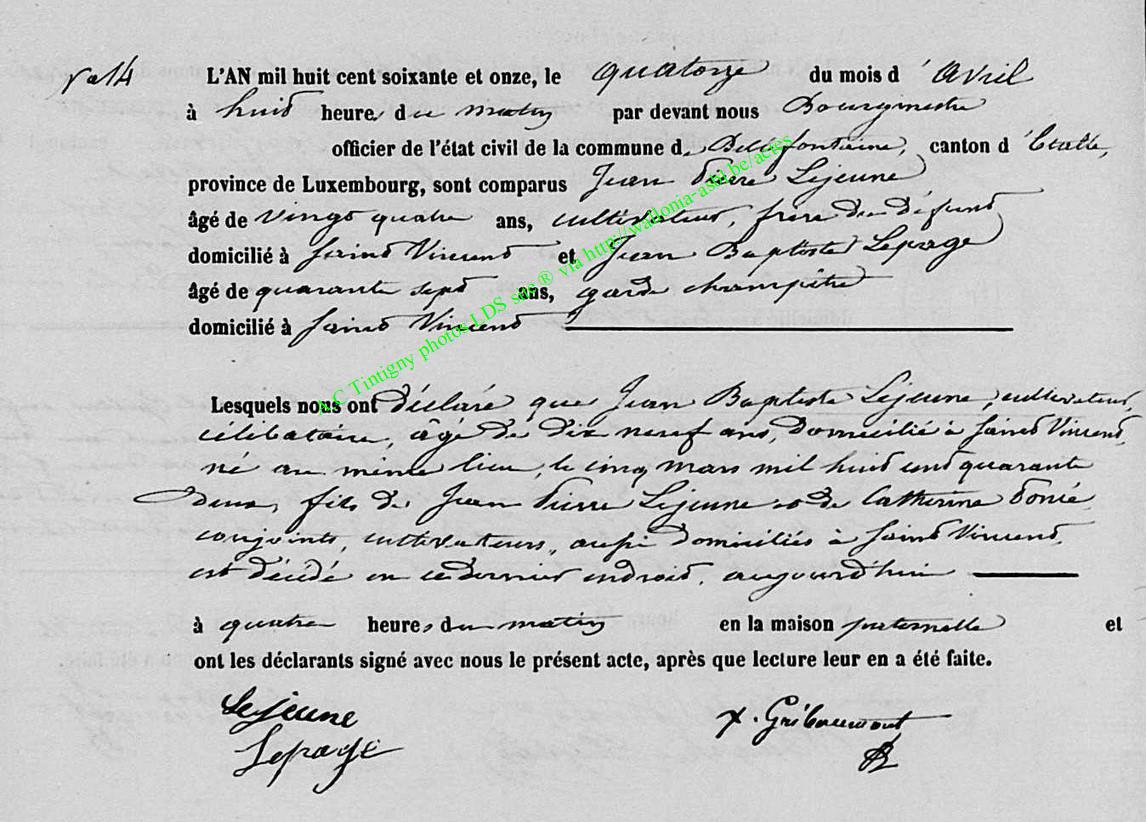 N° 14
L'AN mil huit cent soixante et onze, le quatorze du mois d'Avril
à huit heures du matin par devant nous Bourgmestre
officier de l'état civil de la commune de Bellefontaine, canton d'Etalle,
province de Luxembourg, sont comparus Jean Pierre Lejeune
âgé de vingt quatre ans, cultivateur, frère du défunt
domicilié à Saint Vincent et Jean Baptiste Lepage
âgé de quarante sept ans, garde champêtre
domicilié à Saint Vincent
A.C Tintigny photos LDS scc® via http://wallonia-asbl.be/actes
Lesquels nous ont déclaré que Jean Baptiste Lejeune, cultivateur,
célibataire, âgé de dix neuf ans, domicilié à Saint Vincent,
né au même lieu, le cinq mars mil huit cent quarante
deux, fils de Jean Pierre Lejeune et de Catherine
conjoints, cultivateurs, aussi domiciliés à Saint Vincent,
est décédé en ce dernier endroit, aujourd'hui
à quatre heures du matin en la maison paternelle et
ont les déclarants signé avec nous le présent acte, après que lecture leur en a été faite.
Lejeune
Lepage
X. Gribaumont